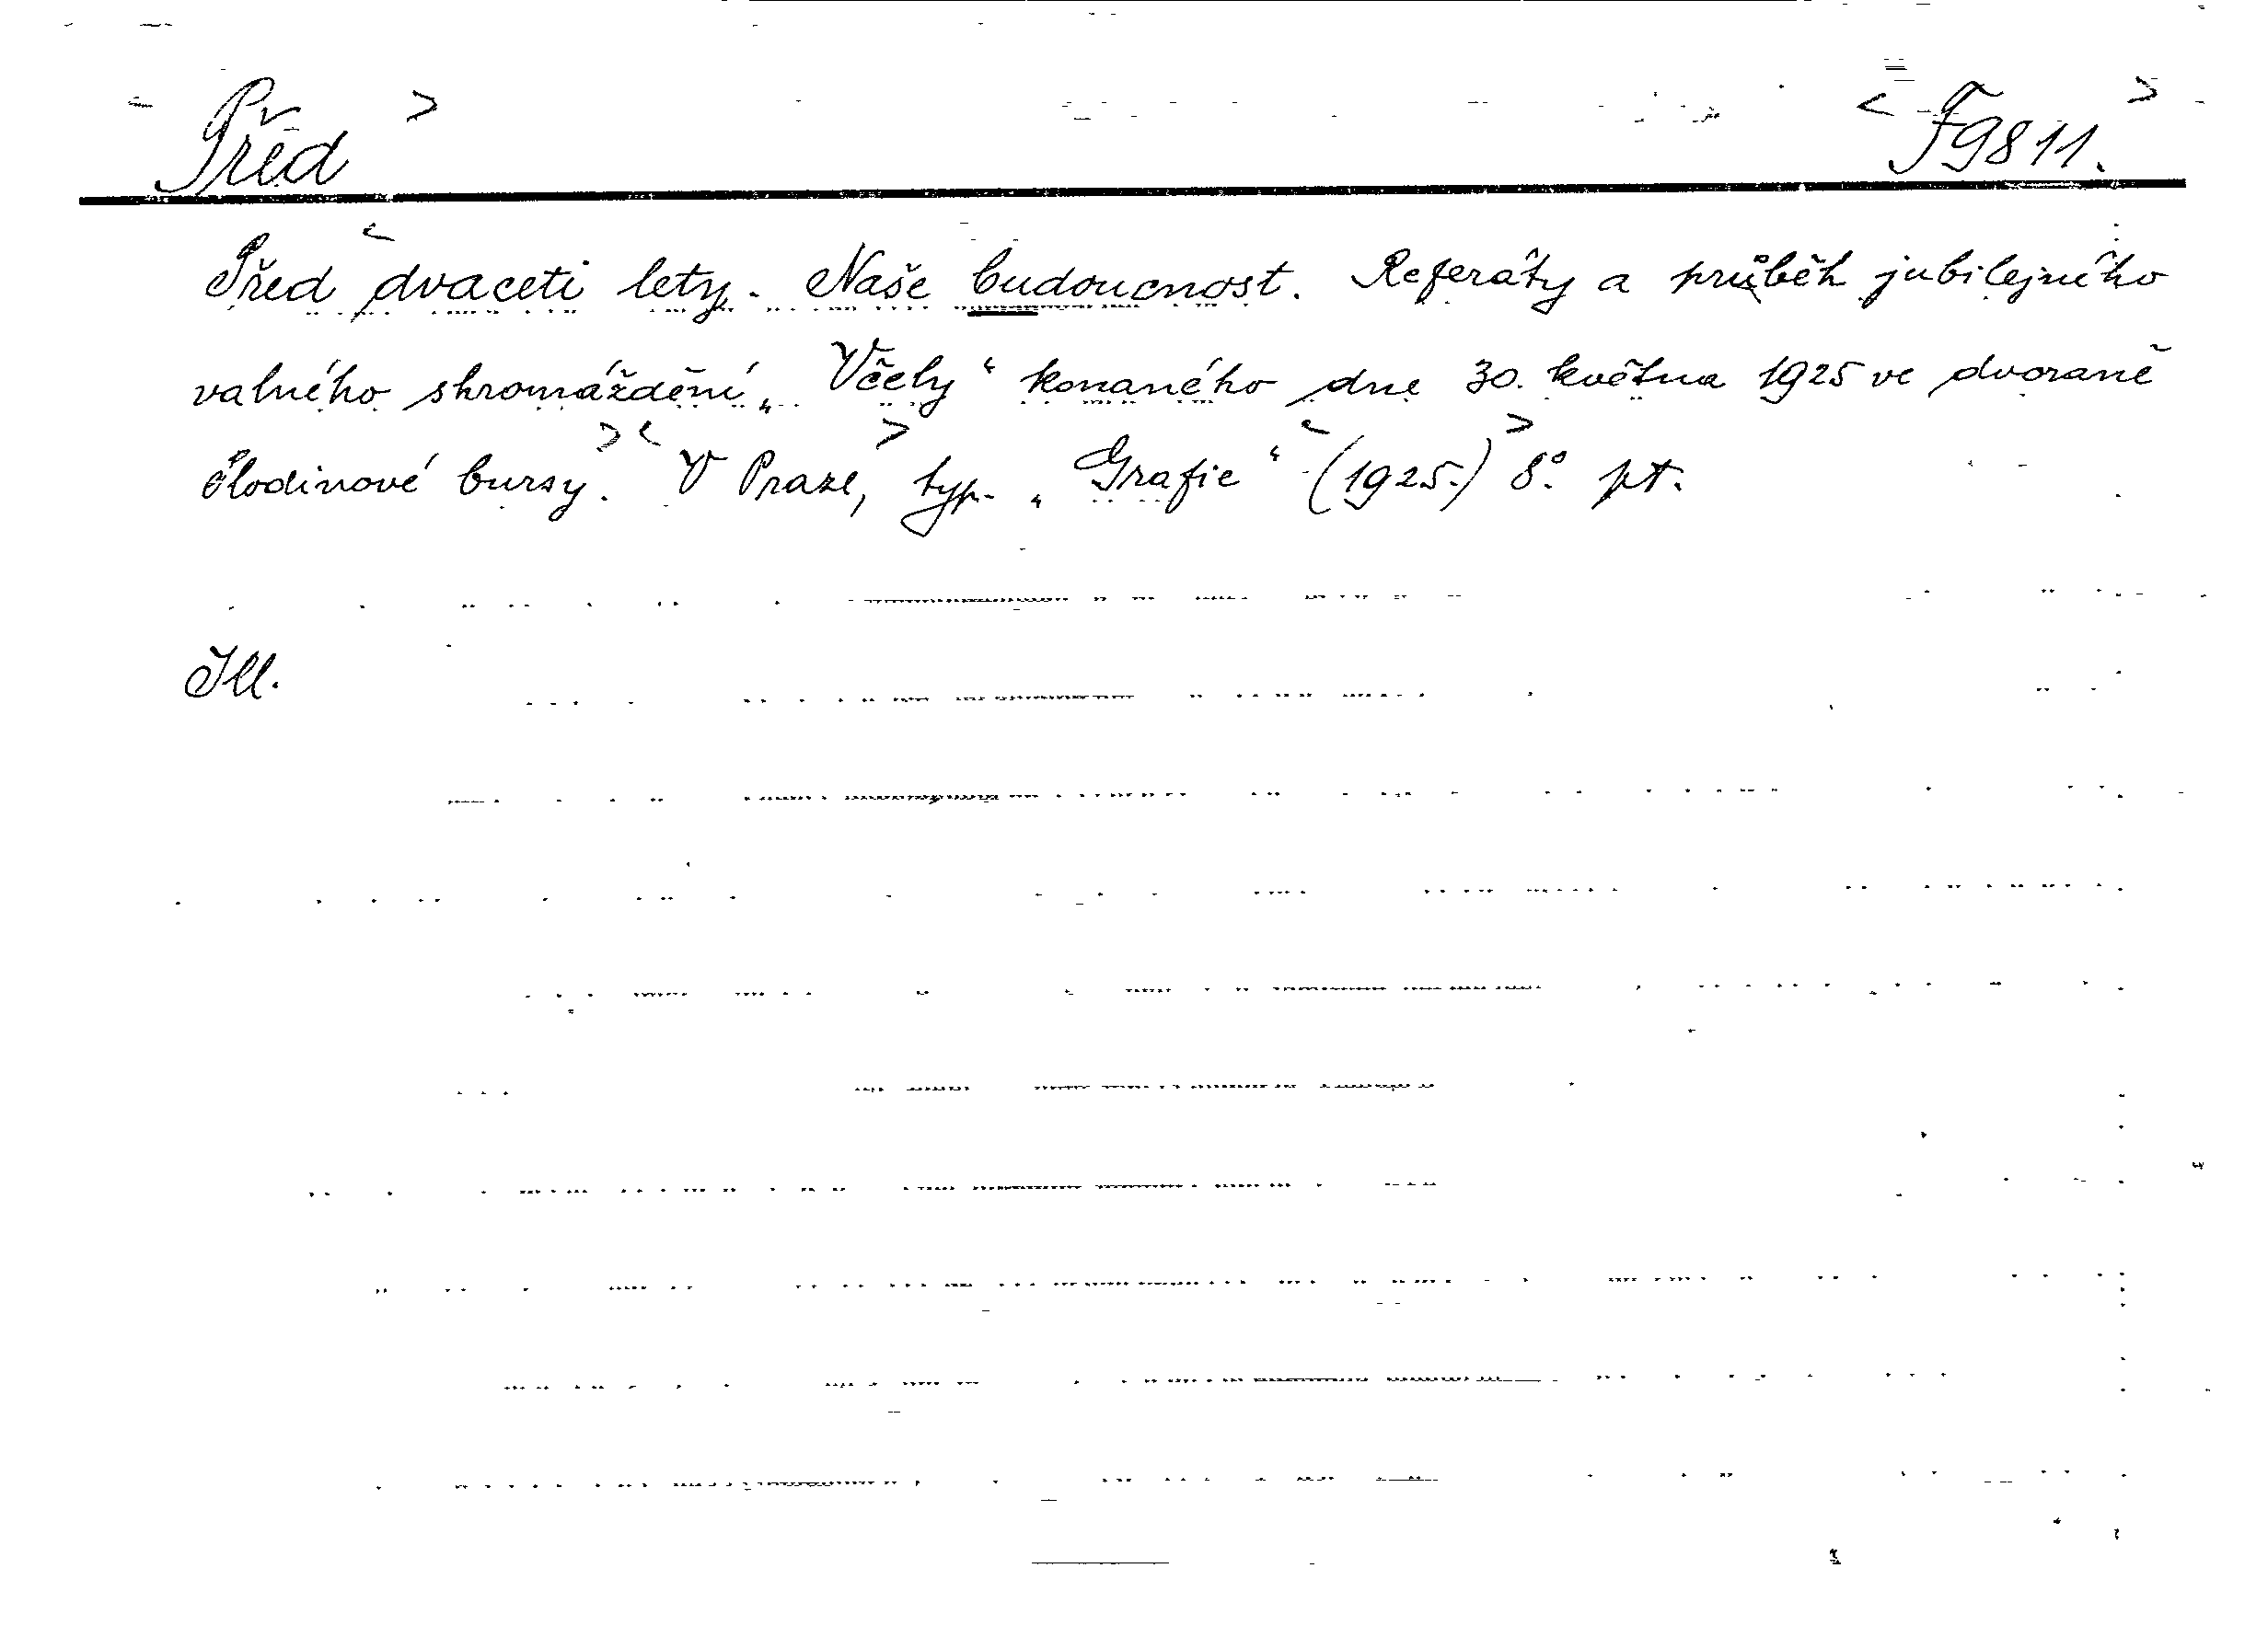 Před F9811.
Před dvaceti lety. Naše budoucnost. Referáty a průběh jubilejného
valného shromáždění „Včely“ konaného dne 30. května 1925 ve dvoraně
Plodinové bursy. V Praze, typ. „Grafie“ (1925.) 8° pt.
Ill.